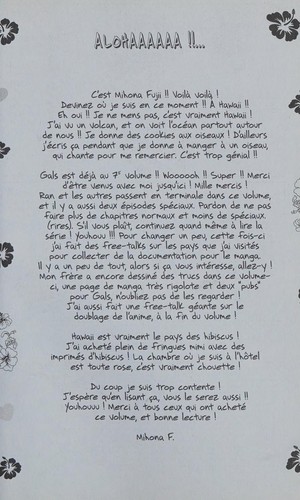 ALOHAAAAAA !!...
C'est Mihona Fujii !! Voilà voilà !
Devinez où je suis en ce moment !! À Hawaii !!
Eh oui !! Je ne mens pas, c'est vraiment Hawaii !
J'ai vu un volcan, et on voit l'océan partout autour
de nous !! Je donne des cookies aux oiseaux ! D'ailleurs
j'écris ça pendant que je donne à manger à un oiseau,
qui chante pour me remercier. C'est trop génial !!
Gals est déjà au 7e volume !! Woooooh !! Super !! Merci
d'être venus avec moi jusqu'ici ! Mille mercis !
Ran et les autres passent en terminale dans ce volume,
et il y a aussi deux épisodes spéciaux. Pardon de ne pas
faire plus de chapitres normaux et moins de spéciaux.
(rires). S'il vous plaît, continuez quand même à lire la
série ! Youhouu !!! Pour changer un peu, cette fois-ci
j'ai fait des free-talks sur les pays que j'ai visités
pour collecter de la documentation pour le manga.
Il y a un peu de tout, alors si ça vous intéresse, allez-y !
Mon frère a encore dessiné des trucs dans ce volume-
ci, une page de manga très rigolote et deux "pubs"
pour Gals, n'oubliez pas de les regarder !
J'ai aussi fait une free-talk géante sur le
doublage de l'anime, à la fin du volume !
Hawaii est vraiment le pays des hibiscus !
J'ai acheté plein de fringues mimi avec des
imprimés d'hibiscus ! La chambre où je suis à l'hôtel
est toute rose, c'est vraiment chouette !
Du coup je suis trop contente !
J'espère qu'en lisant ça, vous le serez aussi !!
Youhouu ! Merci à tous ceux qui ont acheté
ce volume, et bonne lecture !
Mihona F.